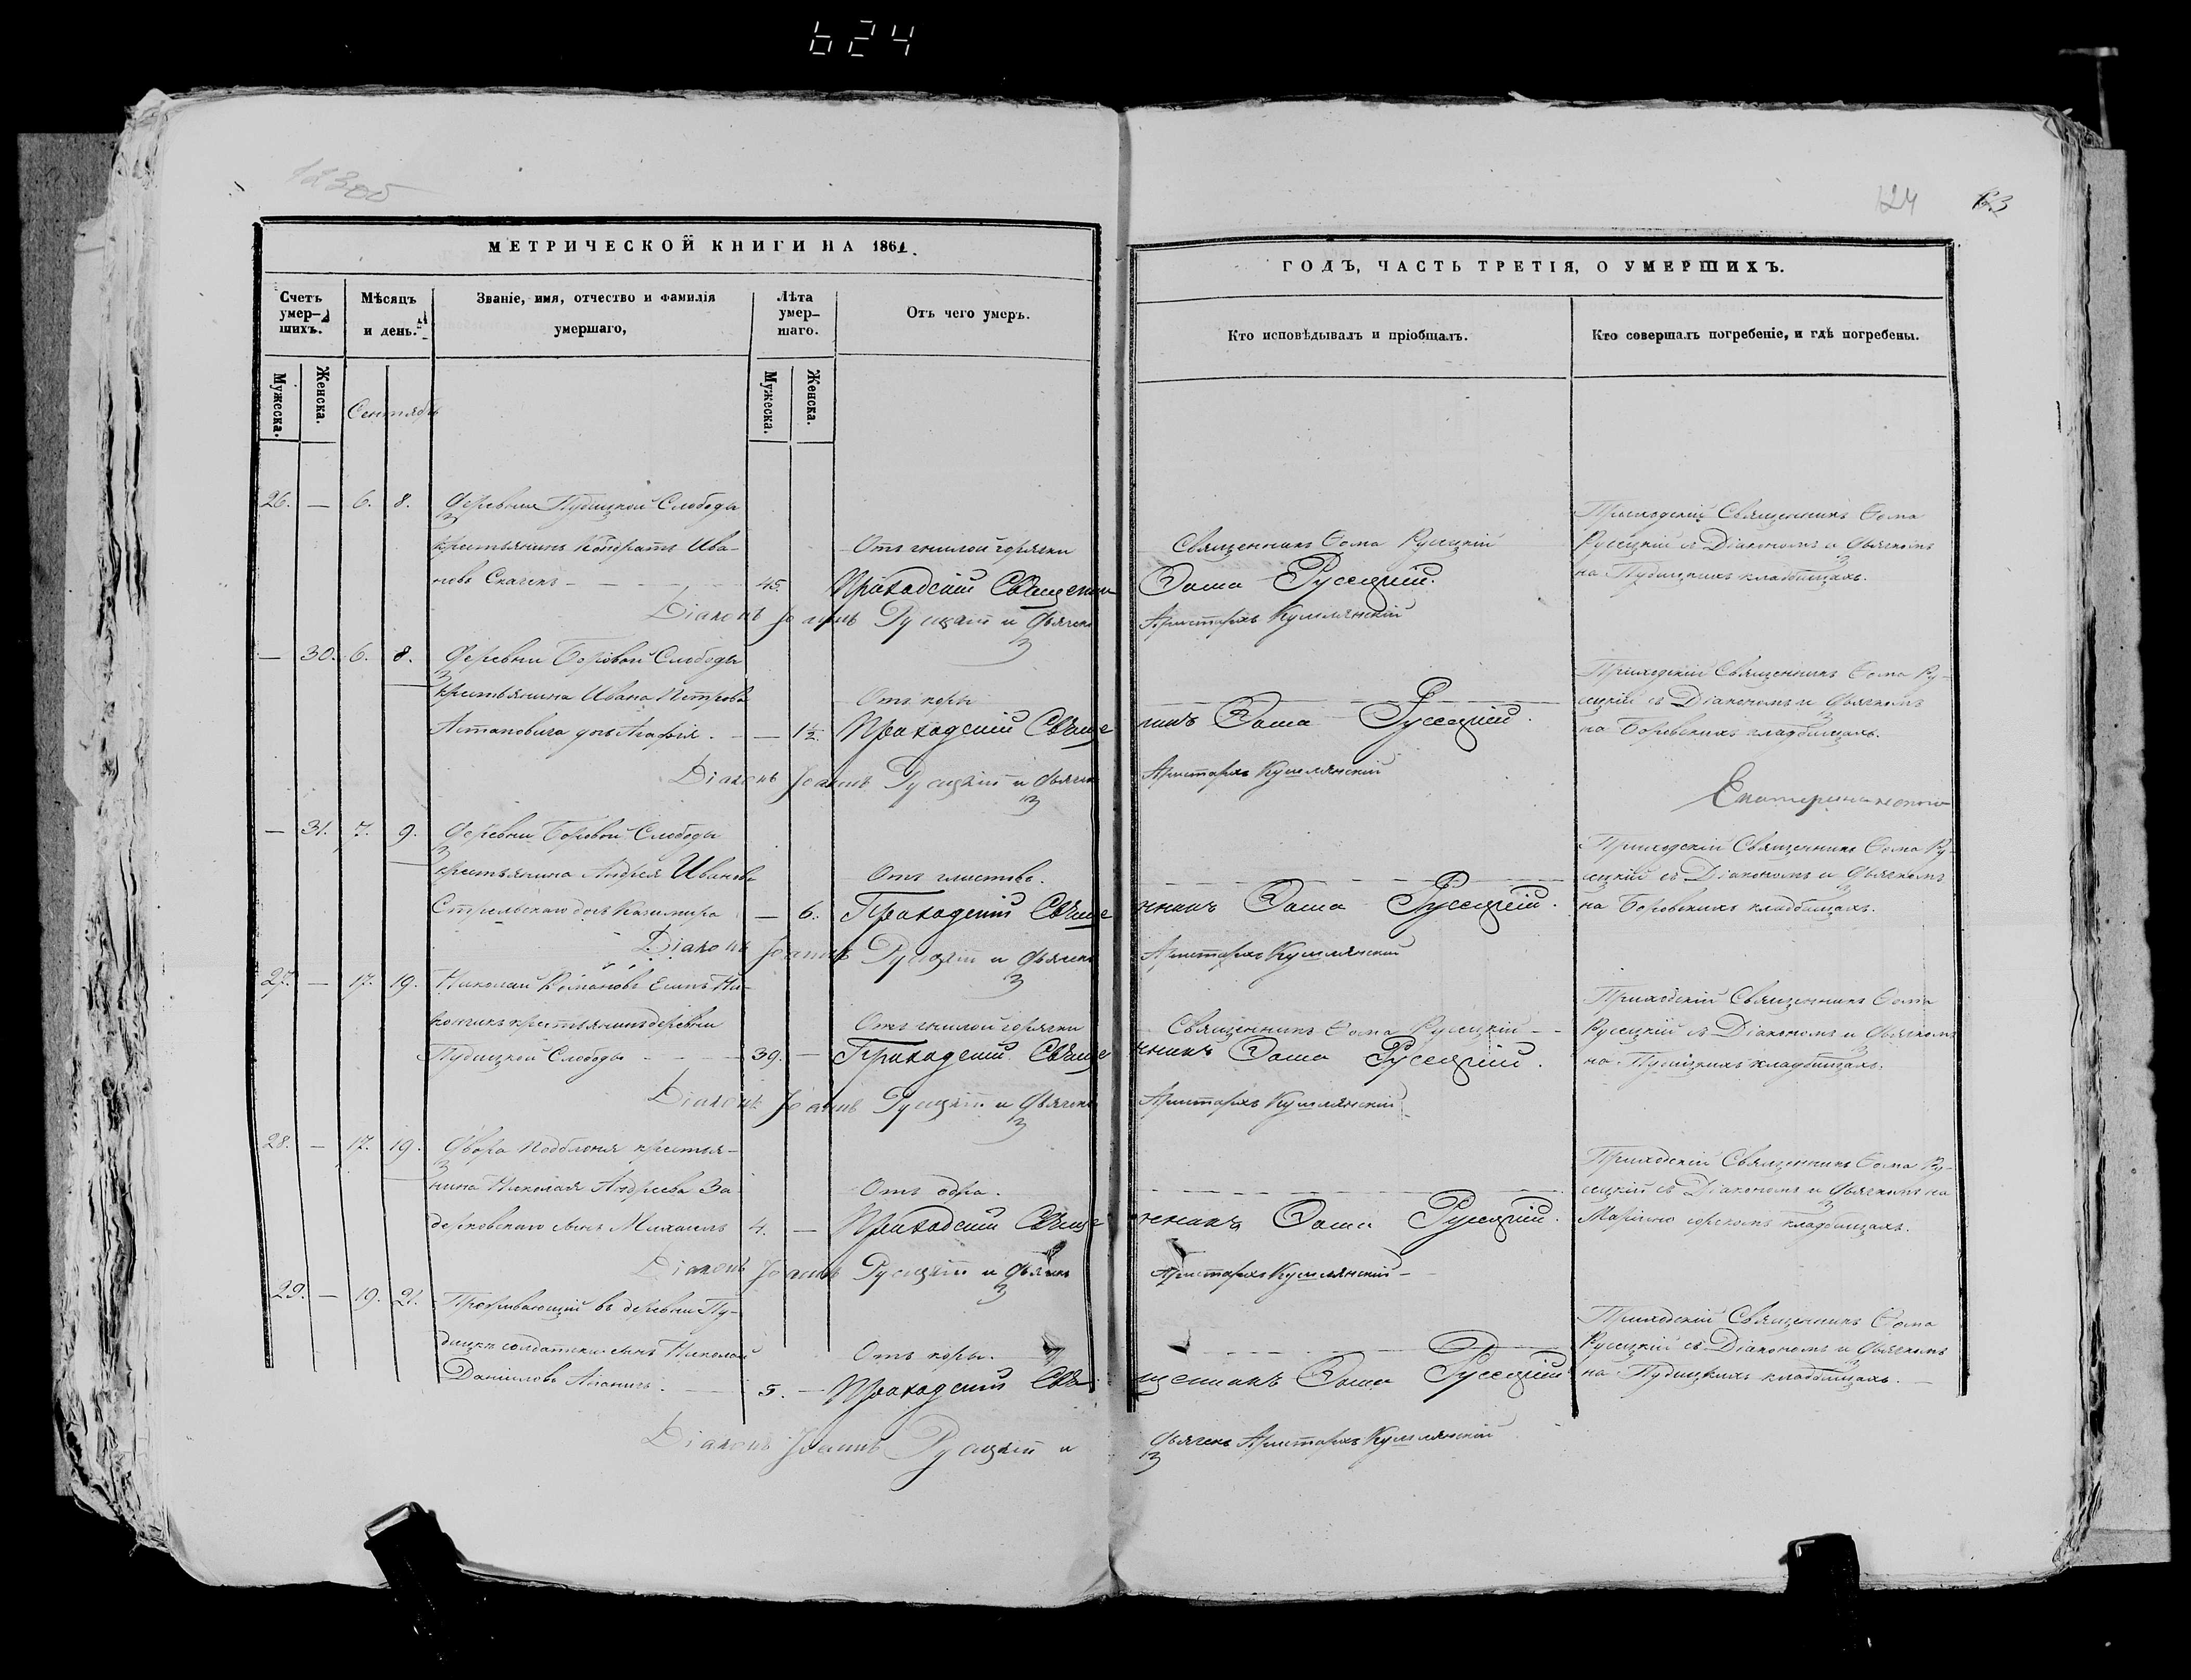 624
123об
124
123
МЕТРИЧЕСКОЙ КНИГИ НА 1861.
Счетъ умер-шихъ.
Мѣсяцъ и день.
Званіе, имя, отчество и фамилія умершаго,
Лѣта умер-шаго.
Отъ чего умеръ.
Мужеска.
Женска.
Мужеска.
Женска.
Сентябрь
ГОДЪ, ЧАСТЬ ТРЕТІЯ, О УМЕРШИХЪ.
Кто исповѣдывалъ и пріобщалъ.
Кто совершалъ погребеніе, и гдѣ погребены.
26. — 6. 8. Деревни Пудицкой Слободы
крестьянинъ Кондратъ Ива-
новъ — 45.
Отъ гнилой горячки
Приходскій Священни
Діаконъ Іоаннъ Русецкій и Дьячекъ
Священникъ Ѳома Русецкій
Ѳома Русецкій.
Аристархъ
Приходскій Священникъ Ѳома
Русецкій съ Діакономъ и Дьячкомъ
на Пудицкихъ кладбищахъ.
— 30. 6. 8. Деревни Боровой Слободы
крестьянина Ивана Петрова
Астаповича дочь Агафія. — 1½.
Отъ коры
Приходскій Свяще
Діаконъ Іоаннъ Русецкій и Дьячекъ
никъ Ѳома Русецкій.
Аристархъ
Приходскій Священникъ Ѳома Ру-
сецкій съ Діакономъ и Дьячкомъ
на Боровскихъ кладбищахъ.
— 31. 7. 9. Деревни Боровой Слободы
крестьянина Андрея Иванова
Стрельскаго дочь — 6.
Отъ глистовъ.
Приходскій Свяще
Діаконъ Іоаннъ Русецкій и Дьячекъ
нникъ Ѳома Русецкій.
Аристархъ
Приходскій Священникъ Ѳома Ру-
сецкій съ Діакономъ и Дьячкомъ
на Боровскихъ кладбищахъ.
27. — 17. 19. Николай Романовъ
крестьянинъ деревни
Пудицкой Слободы — 39. —
Отъ гнилой горячки
Приходскій Свяще
Діаконъ Іоаннъ Русецкій и Дьячекъ
Священникъ Ѳома Русецкій —
нникъ Ѳома Русецкій.
Аристархъ
Приходскій Священникъ Ѳома
Русецкій съ Діакономъ и Дьячкомъ
на Пудицкихъ кладбищахъ.
28. — 17. 19. Двора крестья-
нина Николая Андреева За-
дерковскаго сынъ Михаилъ 4. —
Отъ одра.
Приходскій Свяще
Діаконъ Іоаннъ Русецкій и Дьячекъ
нникъ Ѳома Русецкій.
Аристархъ
Приходскій Священникъ Ѳома Ру-
сецкій съ Діакономъ и Дьячкомъ на
кладбищахъ.
29. — 19. 21. Проживающій въ деревни Пу-
дицкѣ солдатки сынъ Николай
Даниловъ — 5. —
Отъ коры.
Приходскій Свя
Діаконъ Іоаннъ Русецкій и
щенникъ Ѳома Русецкій
Дьячекъ Аристархъ
Приходскій Священникъ Ѳома
Русецкій съ Діакономъ и Дьячкомъ
на Пудицкихъ кладбищахъ. —